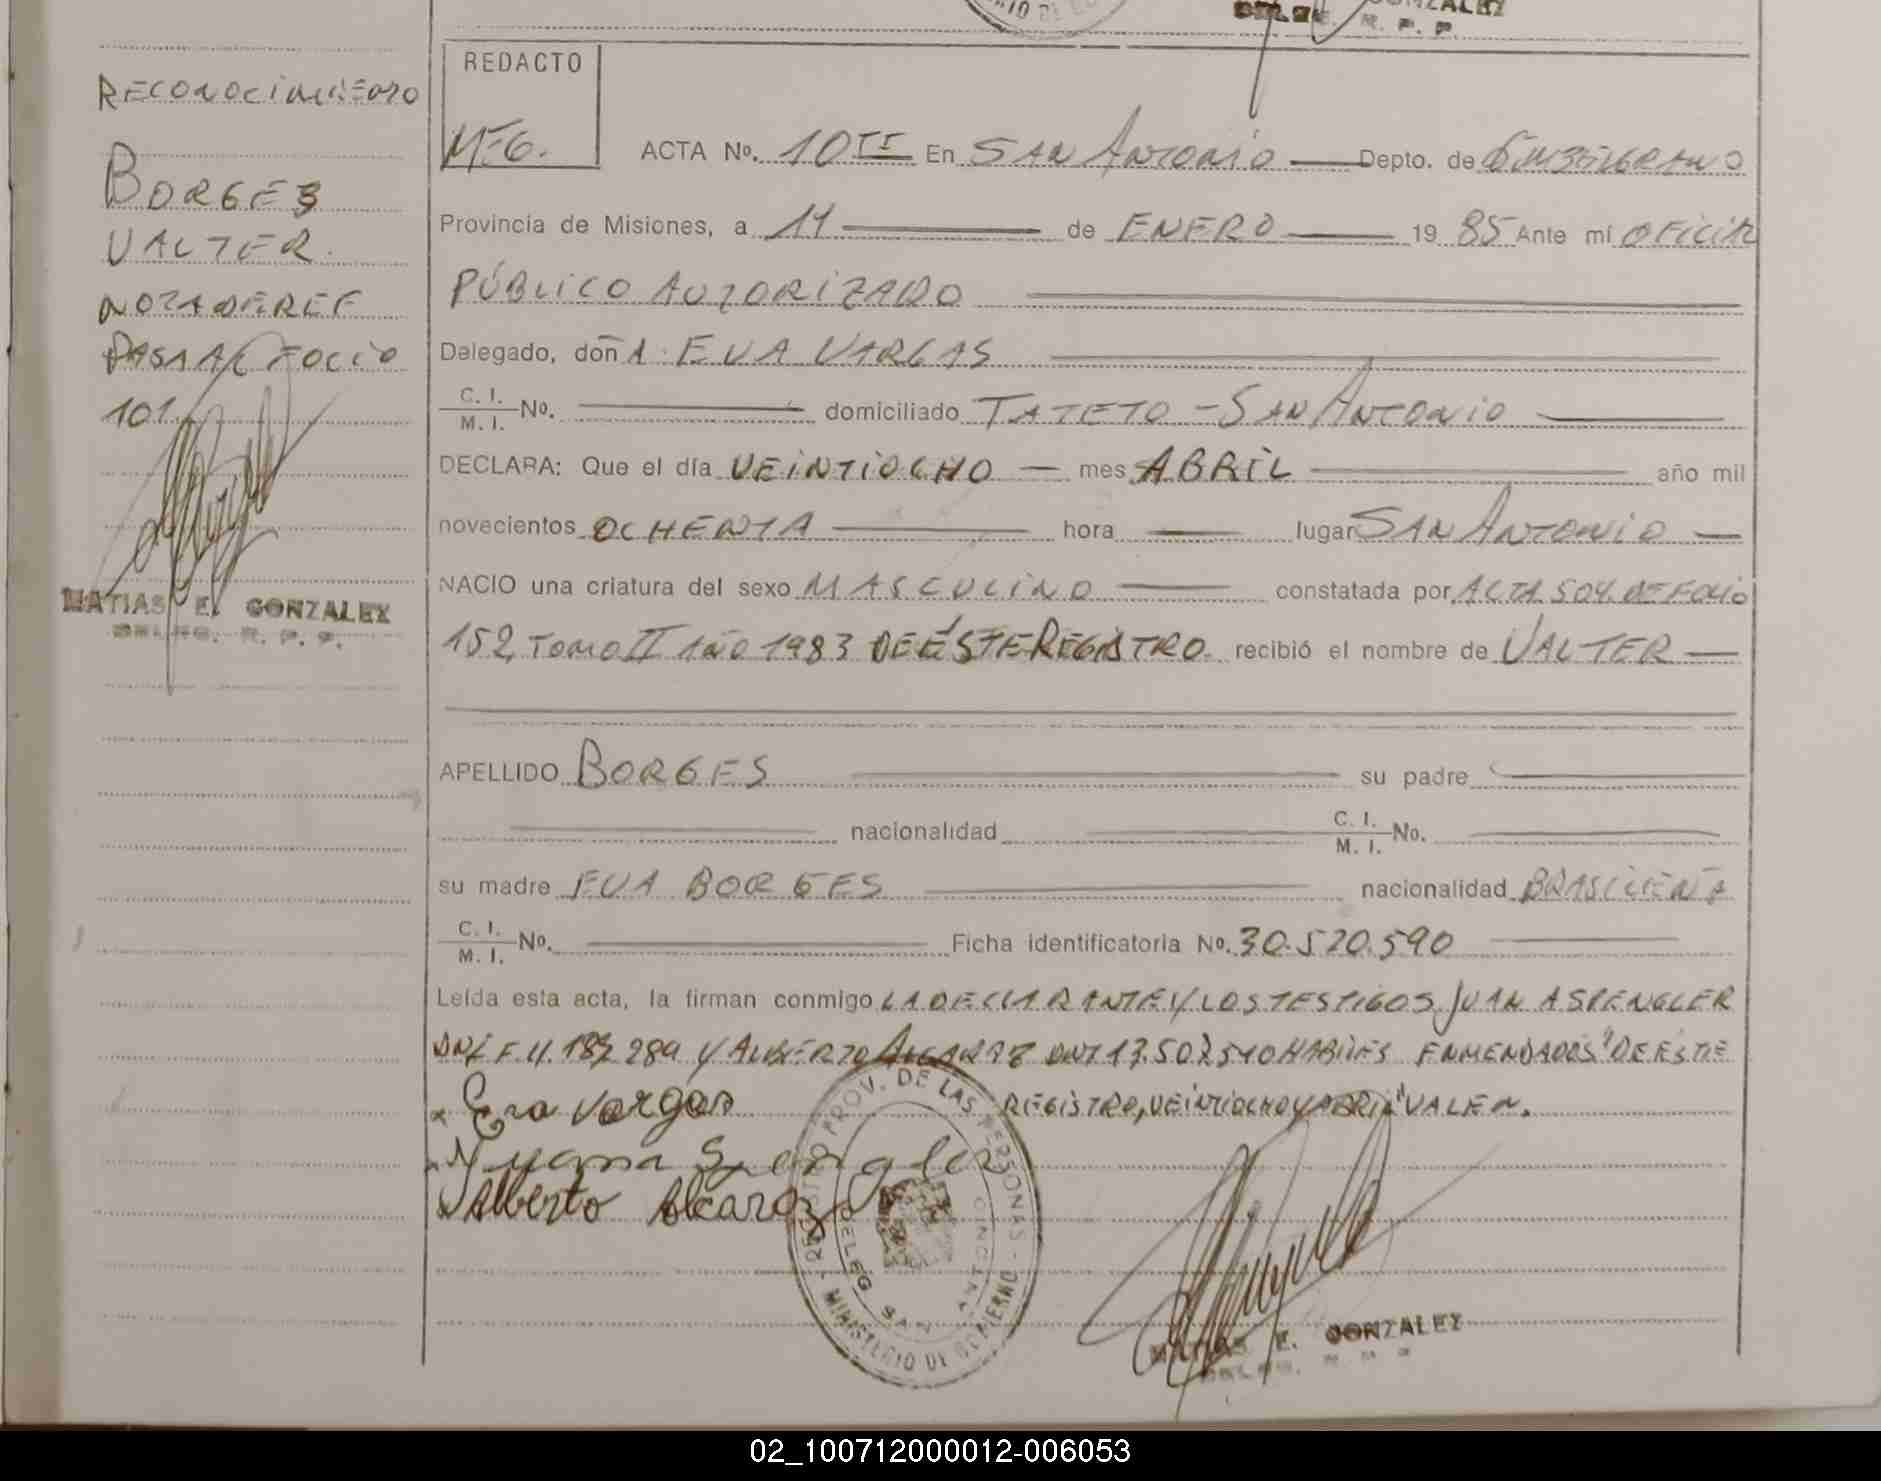 GONZALEZ
DELEG. R. P. P.
REDACTO
M.E.G.
RECONOCIMIENTO
BORGES
VALTER.
NOTA DE REF
PASA AL FOLIO
101.
MATIAS E. GONZALEZ
DELEG. R. P. P.
ACTA No. 10 II En SAN ANTONIO Depto. de
Provincia de Misiones, a 11 de ENERO 19 85 Ante mí OFICIAL
PÚBLICO AUTORIZADO
Delegado, doñA. EVA VARGAS
C. I. / M. I. No. domiciliado TATETO - SAN ANTONIO
DECLARA: Que el día VEINTIOCHO mes ABRIL año mil
novecientos OCHENTA hora lugar SAN ANTONIO
NACIO una criatura del sexo MASCULINO constatada por ACTA 504 DE FOLIO
152, TOMO II AÑO 1983 DE ÉSTE REGISTRO. recibió el nombre de VALTER
APELLIDO BORGES su padre
nacionalidad C. I. / M. I. No.
su madre EVA BORGES nacionalidad BRASILEÑA
C. I. / M. I. No. Ficha identificatoria No. 30.520.590
Leída esta acta, la firman conmigo LA DECLARANTE Y LOS TESTIGOS JUAN A SPENGLER
Y ALBERTO ALCARAZ DNI 13.502510 HABILES ENMENDADOS "DE ESTE
REGISTRO, VEINTIOCHO Y ABRIL" VALEN.
Eva Vargas
Spengler
Alberto Alcaraz
REGISTRO PROV. DE LAS PERSONAS - MINISTERIO DE GOBIERNO
DELEG. SAN ANTONIO
MATIAS E. GONZALEZ
02_100712000012-006053